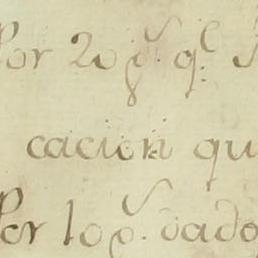 Por 20 p.s q.e
cacion qu
Por 10 p.s dado